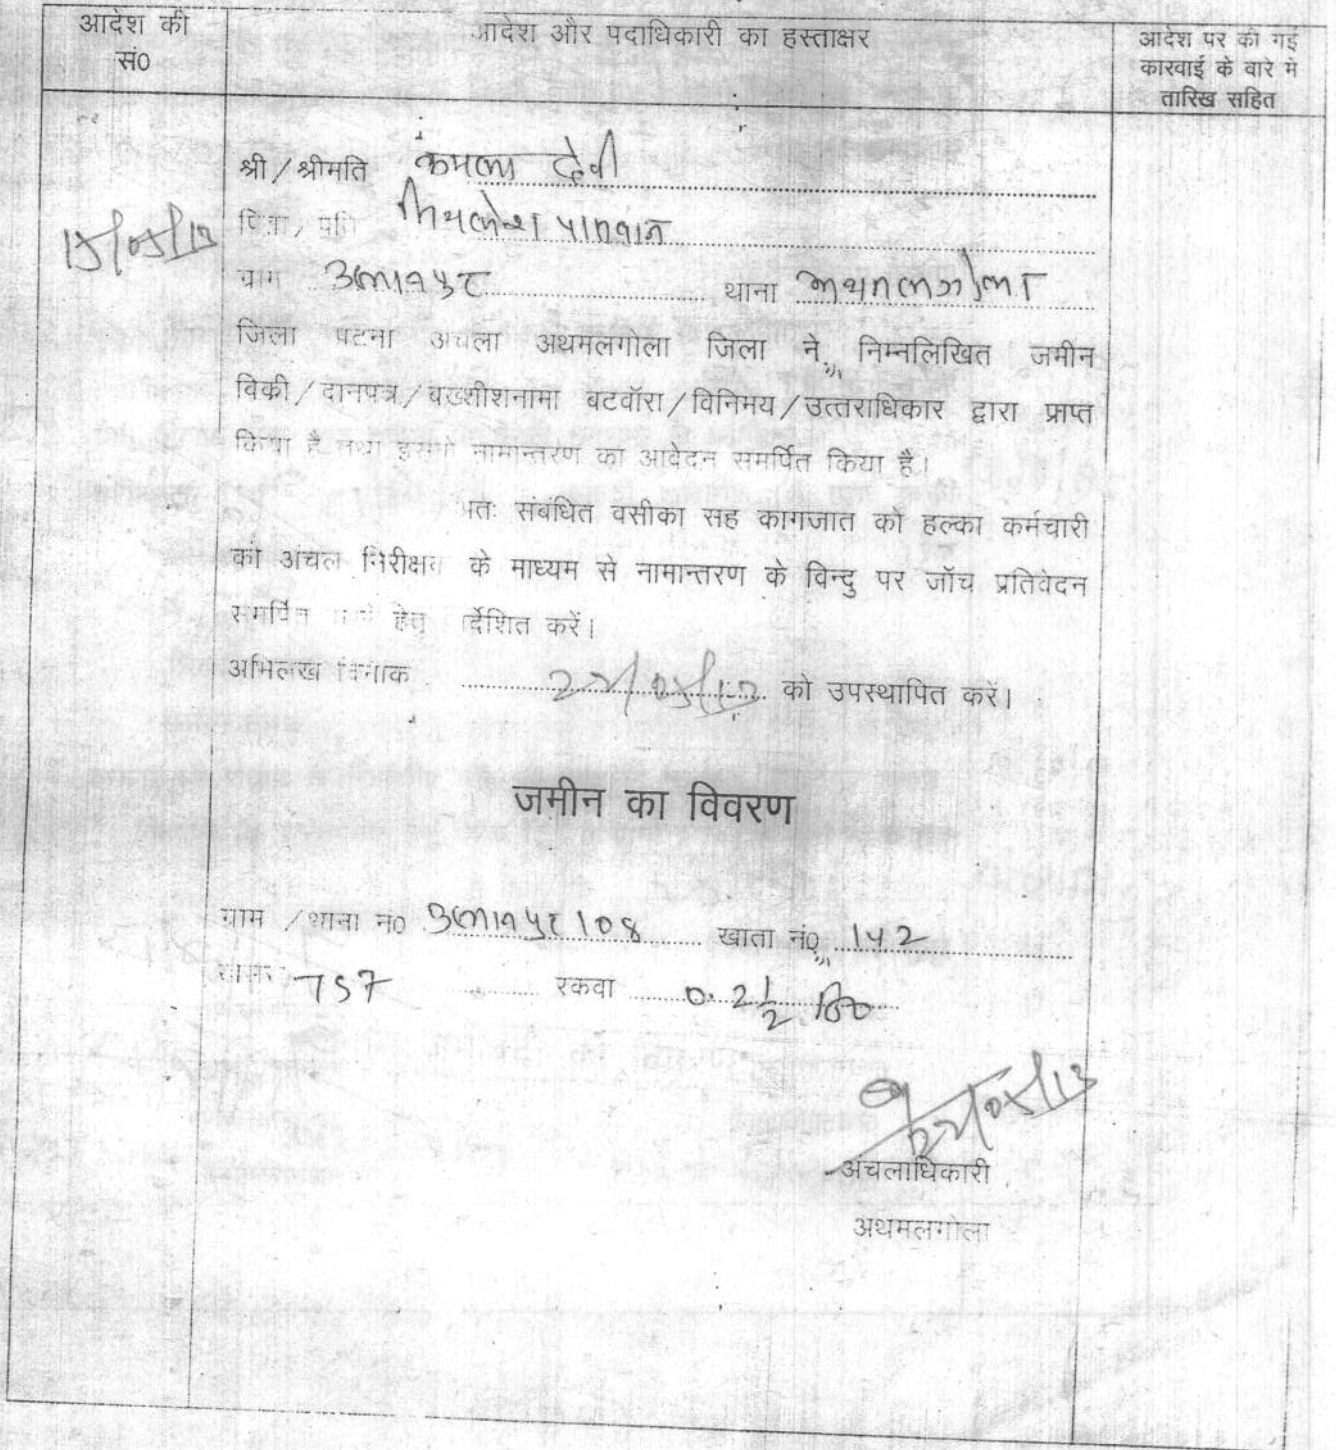 आदेश की
सं0
आदेश और पदाधिकारी का हस्ताक्षर
आदेश पर की गई
कारवाई के वारे मे
तारिख सहित
श्री/श्रीमति कमला देवी
15/05/13
पिता/पति मिथलेश पासवान
ग्राम थाना अथमलगोला
जिला पटना अचला अथमलगोला जिला ने, निम्नलिखित जमीन
विकी/दानपत्र/बख्शीशनामा बटवॉरा/विनिमय/उत्तराधिकार द्वारा प्राप्त
किया है तथा इसमे नामान्तरण का आवेदन समर्पित किया है।
अतः संबंधित वसीका सह कागजात को हल्का कर्मचारी
को अंचल निरीक्षक के माध्यम से नामान्तरण के विन्दु पर जॉच प्रतिवेदन
समर्पित हेतु निर्देशित करें।
अभिलेख दिनांक को उपस्थापित करें।
जमीन का विवरण
ग्राम /थाना नं0 108 खाता नं0 142
757 रकवा 0.2½
अंचलाधिकारी
अथमलगोला